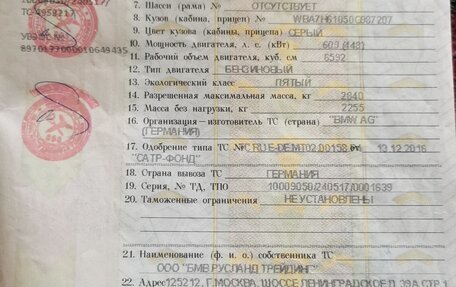 7. Шасси (рама) № ОТСУТСТВУЕТ
8. Кузов (кабина, прицеп) №
9. Цвет кузова (кабины, прицепа) СЕРЫЙ
10. Мощность двигателя, л. с. (кВт) 609 (448)
11. Рабочий объем двигателя, куб. см 6592
12. Тип двигателя БЕНЗИНОВЫЙ
13. Экологический класс ПЯТЫЙ
14. Разрешенная максимальная масса, кг 2840
15. Масса без нагрузки, кг 2255
16. Организация—изготовитель ТС (страна) "BMW AG"
(ГЕРМАНИЯ)
17. Одобрение типа ТС № от 13.12.2016
"САТР-ФОНД"
18. Страна вывоза ТС ГЕРМАНИЯ
19. Серия, № ТД, ТПО 10009050/240517/0001639
20. Таможенные ограничения НЕ УСТАНОВЛЕНЫ
21. Наименование (ф. и. о.) собственника ТС
ООО "БМВ РУСЛАНД ТРЕЙДИНГ"
22. Адрес 125212, Г.МОСКВА, ШОССЕ ЛЕНИНГРАДСКОЕ, Д. 39А СТР.1